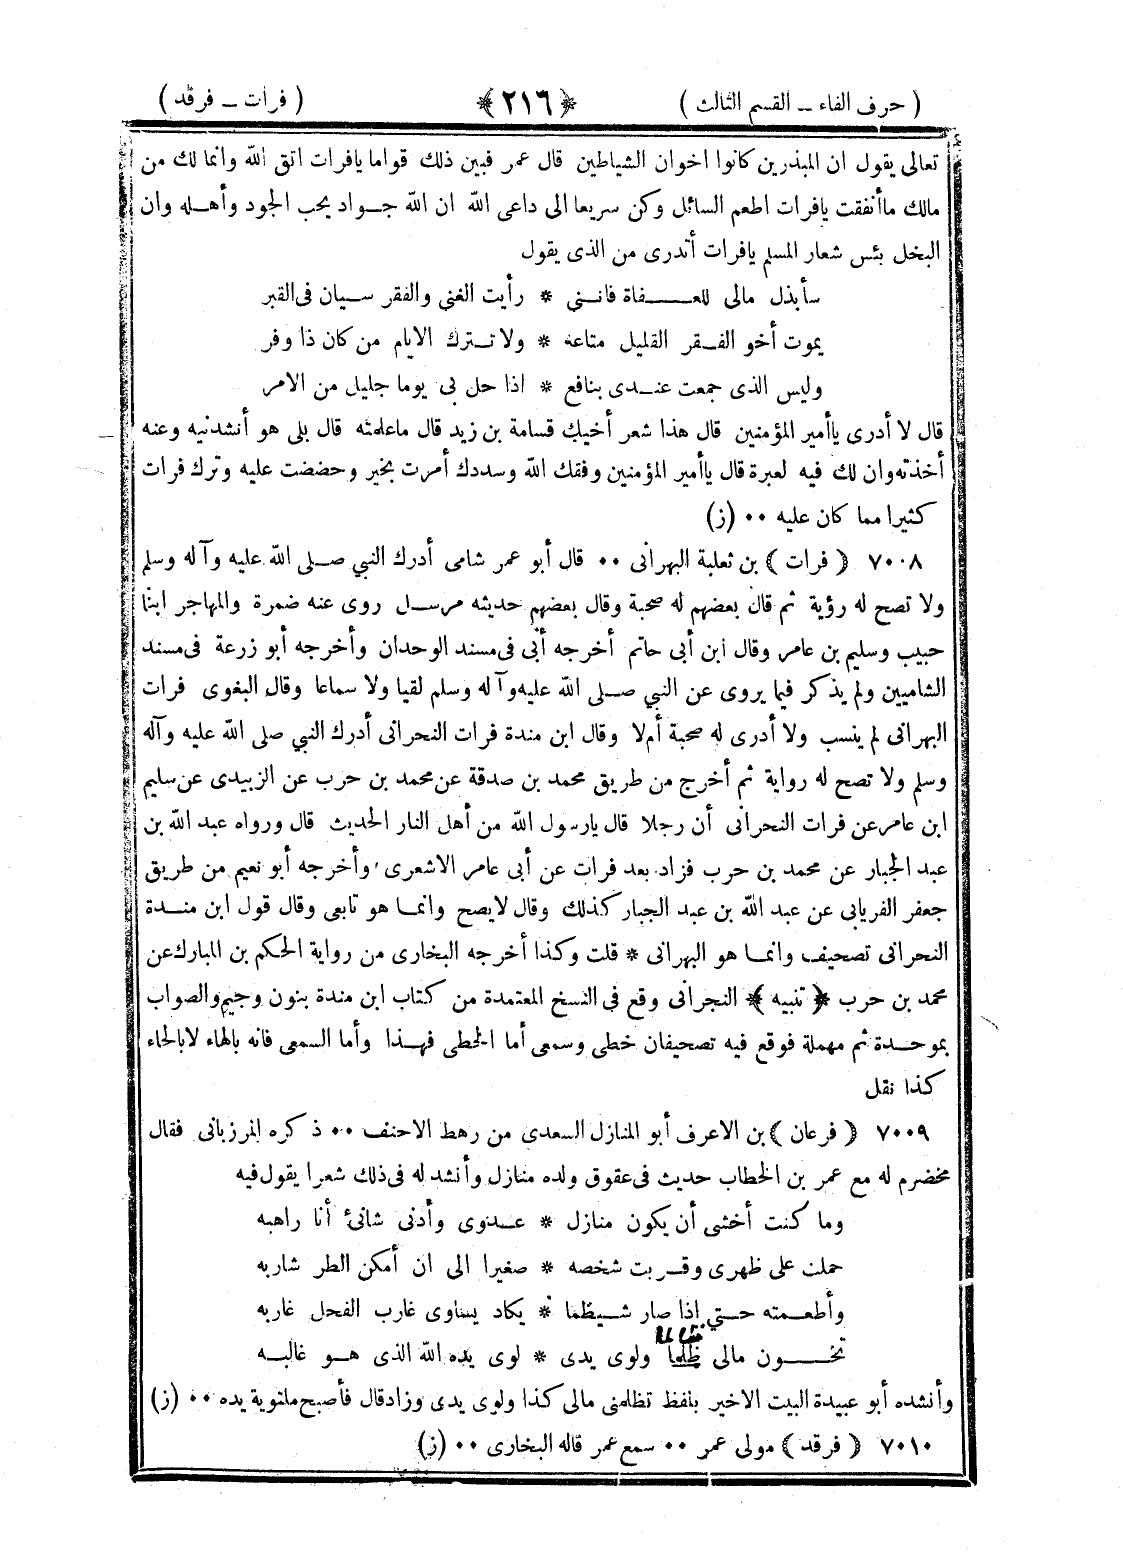 ( حرف الفاء ــ القسم الثالث ) ﴿ ٢١٦ ﴾ ( فرات ــ فرقد )
تعالى يقول ان المبذرين كانوا اخوان الشياطين قال عمر فبين ذلك قواما يافرات اتق الله وانما لك من
مالك ماأنفقت يافرات اطعم السائل وكن سريعا الى داعى الله ان الله جواد يحب الجود وأهله وان
البخل بئس شعار المسلم يافرات أتدرى من الذى يقول
سأبذل مالى للعفاة فاننى * رأيت الغنى والفقر سيان فى القبر
يموت أخو الفقر القليل متاعه * ولا تترك الايام من كان ذا وفر
وليس الذى جمعت عندى بنافع * اذا حل بى يوما جليل من الامر
قال لا أدرى ياأمير المؤمنين قال هذا شعر أخيك قسامة بن زيد قال ماعلمته قال بلى هو أنشدنيه وعنه
أخذته وان لك فيه لعبرة قال ياأمير المؤمنين وفقك الله وسددك أمرت بخير وحضضت عليه وترك فرات
كثيرا مما كان عليه ٠٠ (ز)
٧٠٠٨ ( فرات ) بن ثعلبة البهرانى ٠٠ قال أبو عمر شامى أدرك النبي صلى الله عليه وآله وسلم
ولا تصح له رؤية ثم قال بعضهم له صحبة وقال بعضهم حديثه مرسل روى عنه ضمرة والمهاجر ابنا
حبيب وسليم بن عامر وقال ابن أبى حاتم أخرجه أبى فى مسند الوحدان وأخرجه أبو زرعة فى مسند
الشاميين ولم يذكر فيما يروى عن النبي صلى الله عليه وآله وسلم لقيا ولا سماعا وقال البغوى فرات
البهرانى لم ينسب ولا أدرى له صحبة أم لا وقال ابن مندة فرات النجرانى أدرك النبي صلى الله عليه وآله
وسلم ولا تصح له رواية ثم أخرج من طريق محمد بن صدقة عن محمد بن حرب عن الزبيدى عن سليم
ابن عامر عن فرات النجرانى أن رجلا قال يارسول الله من أهل النار الحديث قال ورواه عبد الله بن
عبد الجبار عن محمد بن حرب فزاد بعد فرات عن أبى عامر الاشعرى وأخرجه أبو نعيم من طريق
جعفر الفريابى عن عبد الله بن عبد الجبار كذلك وقال لايصح وانما هو تابعى وقال قول ابن مندة
النحرانى تصحيف وانما هو البهرانى * قلت وكذا أخرجه البخارى من رواية الحكم بن المبارك عن
محمد بن حرب ﴿ تنبيه ﴾ النجرانى وقع فى النسخ المعتمدة من كتاب ابن مندة بنون وجيم والصواب
بموحدة ثم مهملة فوقع فيه تصحيفان خطى وسمعى أما الخطى فهذا وأما السمعى فانه بالهاء لابالحاء
كذا نقل
٧٠٠٩ ( فرعان ) بن الاعرف أبو المنازل السعدى من رهط الاحنف ٠٠ ذكره المرزبانى فقال
مخضرم له مع عمر بن الخطاب حديث فى عقوق ولده منازل وأنشد له فى ذلك شعرا يقول فيه
وما كنت أخشى أن يكون منازل * عدوى وأدنى شانئ أنا راهبه
حملت على ظهرى وقربت شخصه * صغيرا الى ان أمكن الطر شاربه
وأطعمته حتي إذا صار شيظما * يكاد يساوى غارب الفحل غاربه
تخون مالى ظلما ولوى يدى * لوى يده الله الذى هو غالبه
وأنشده أبو عبيدة البيت الاخير بلفظ تظلمنى مالى كذا ولوى يدى وزاد قال فأصبح ملتوية يده ٠٠ (ز)
٧٠١٠ ( فرقد ) مولى عمر ٠٠ سمع عمر قاله البخارى ٠٠ (ز)